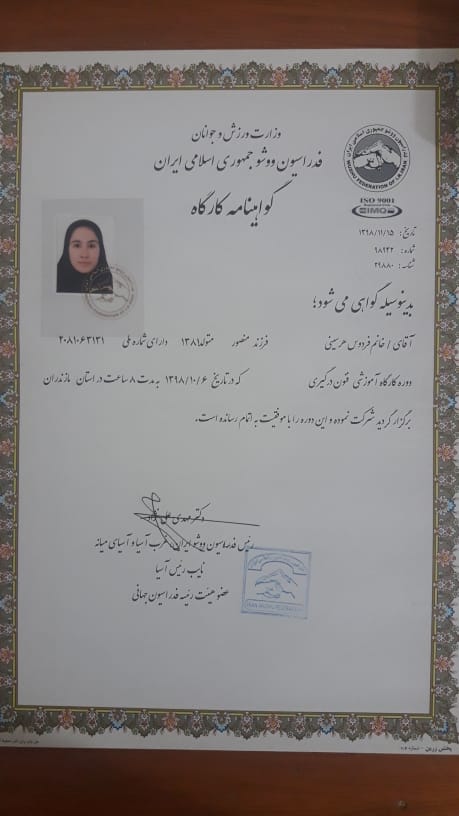 وزارت ورزش و جوانان
فدراسیون ووشو جمهوری اسلامی ایران
گواهینامه کارگاه
WUSHU FEDERATION OF I.R.IRAN
ISO 9001
IMQ
تاریخ: ۱۳۹۸/۱۱/۱۵
شماره: ۹۸۹۴۲
شناسه: ۲۹۸۸۰
بدینوسیله گواهی می شود؛
آقای / خانم فردوس هرسینی فرزند منصور متولد ۱۳۸۱ دارای شماره ملی ۲۰۸۱۰۶۳۱۳۱
دوره کارگاه آموزشی فنون درگیری که در تاریخ ۱۳۹۸/۱۰/۶ به مدت ۸ ساعت در استان مازندران
برگزار گردید شرکت نموده و این دوره را با موفقیت به اتمام رسانده است.
دکتر مهدی علی نژاد
رئیس فدراسیون ووشو ایران، غرب آسیا و آسیای میانه
نایب رئیس آسیا
عضو هیئت رئیسه فدراسیون جهانی
IRAN WUSHU FEDERATION
پخش زرین - شماره ۱۰۵